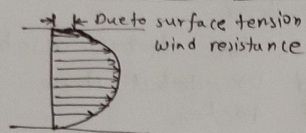 Due to surface tension
wind resistance